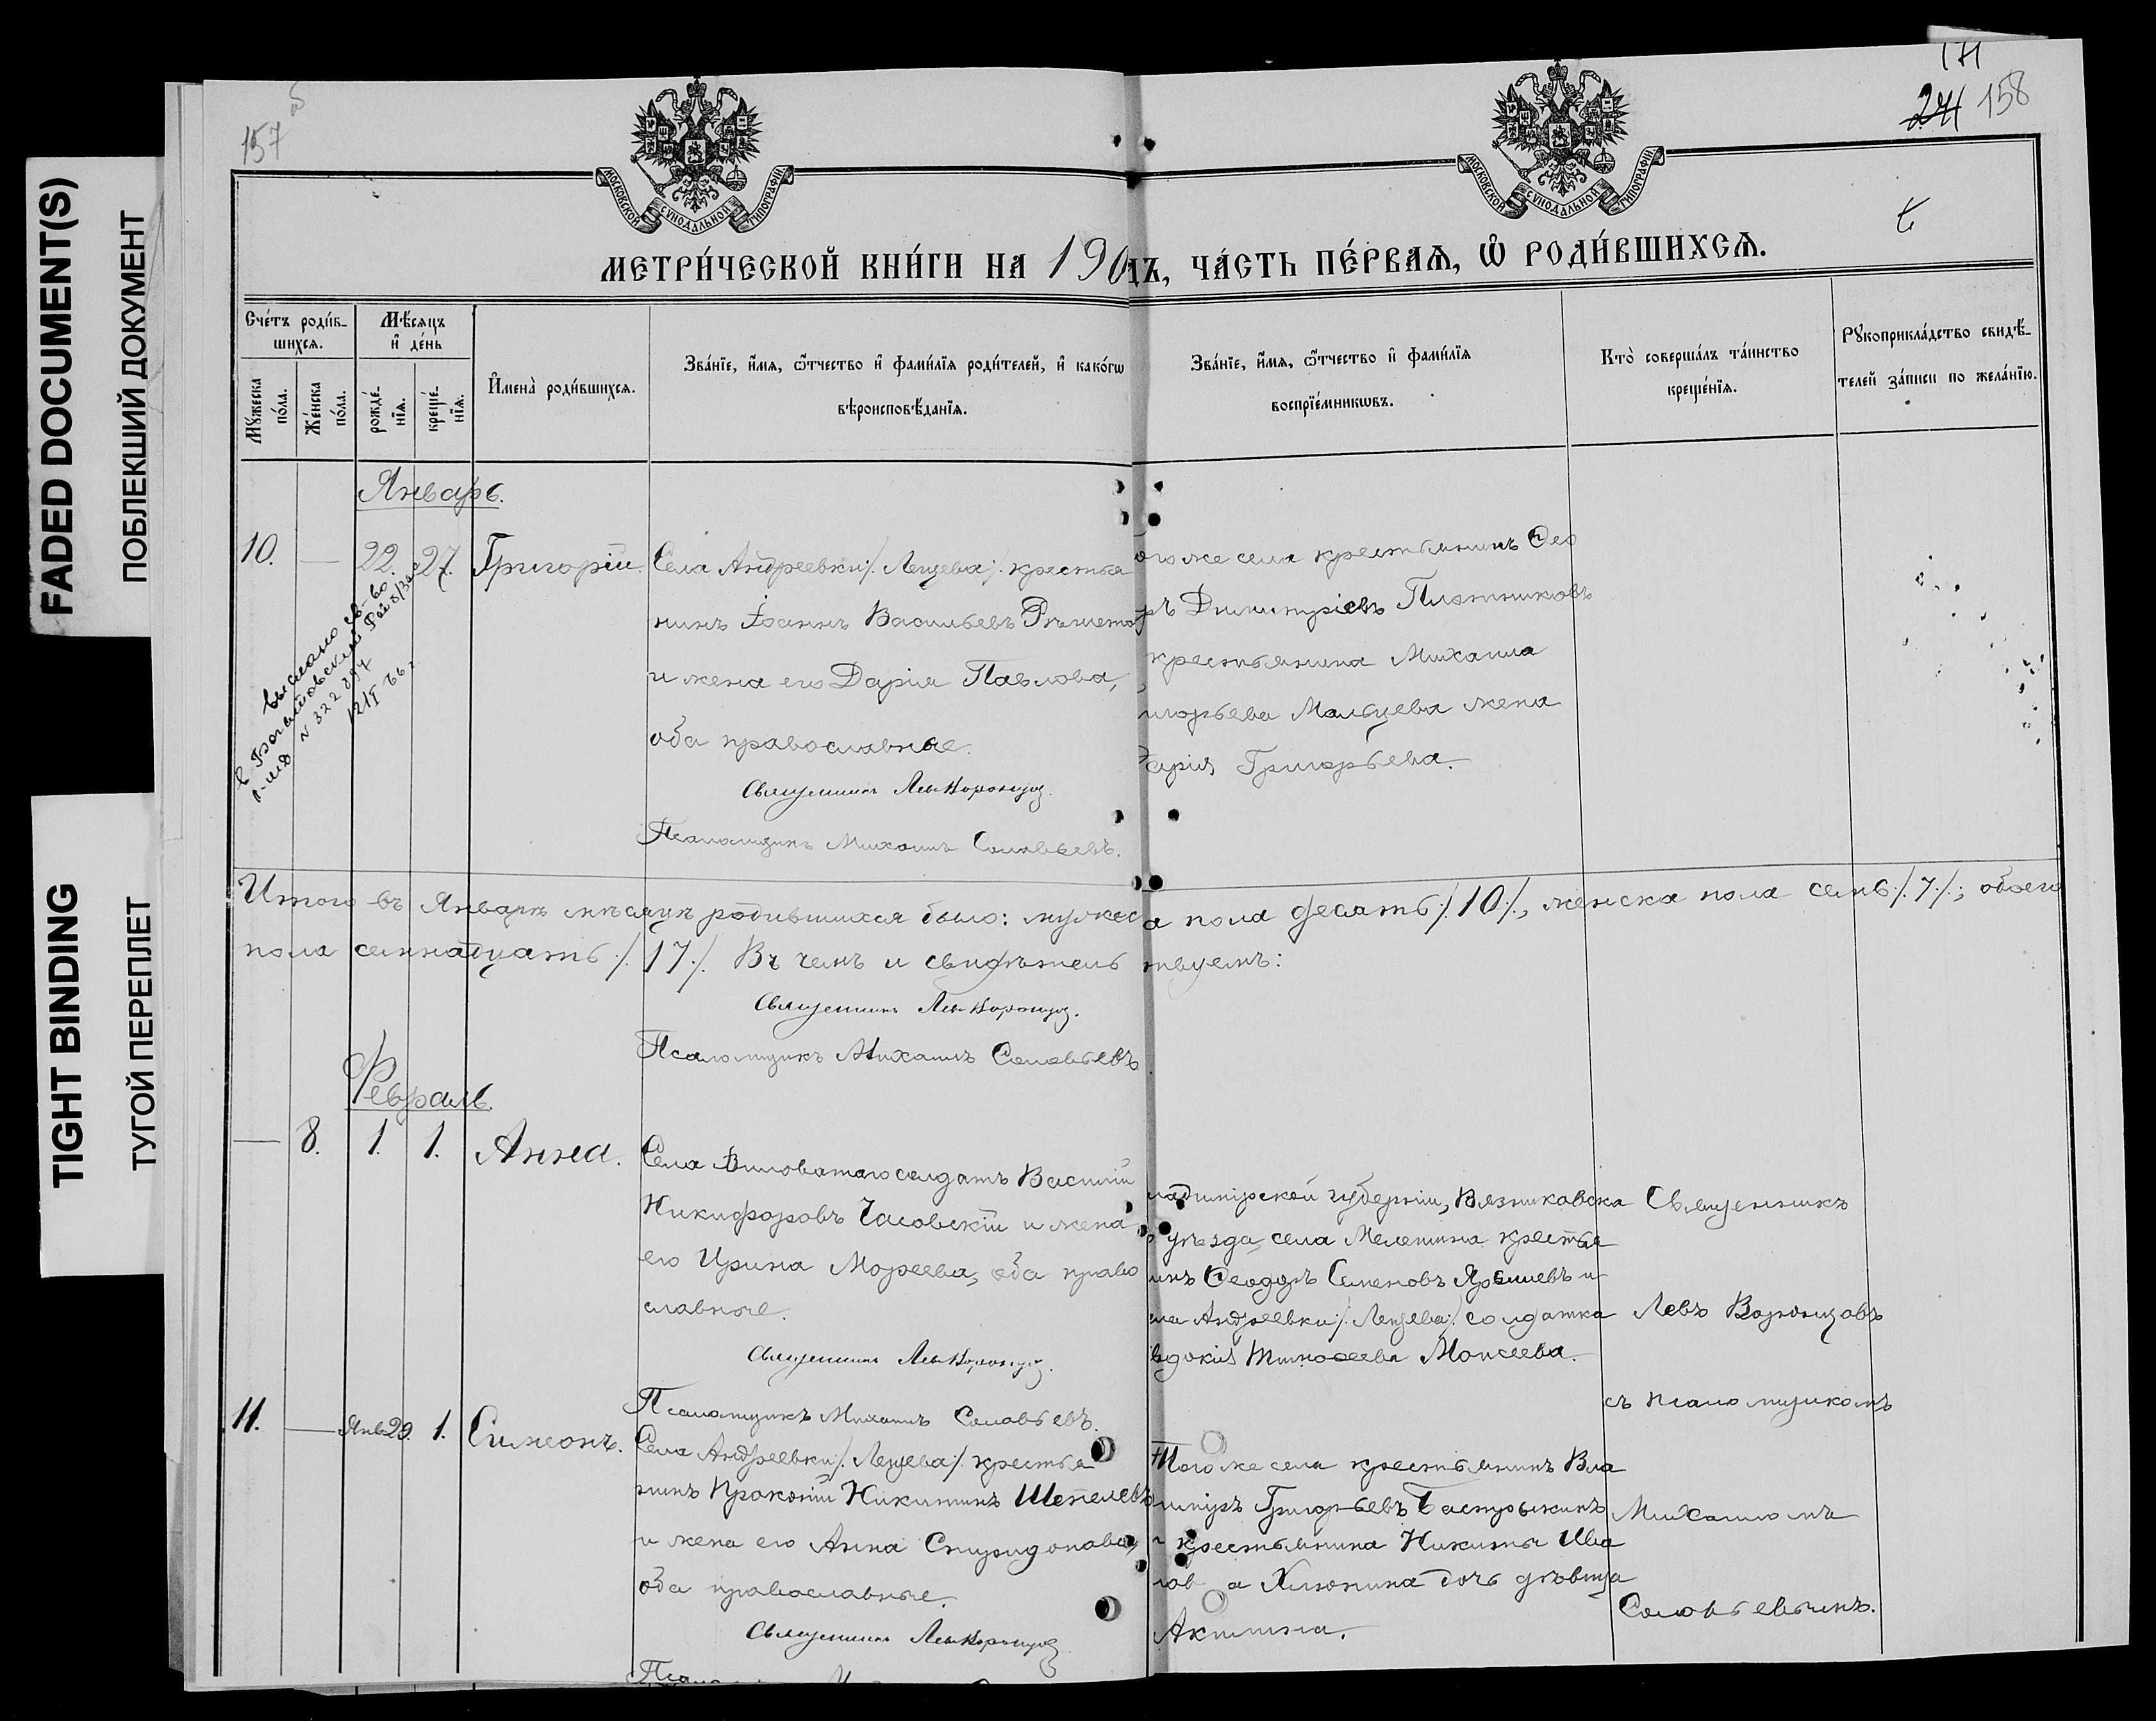 FADED DOCUMENT(S)
ПОБЛЕКШИЙ ДОКУМЕНТ
TIGHT BINDING
ТУГОЙ ПЕРЕПЛЕТ
157
об
171
241 158
МОСКОВСКОЙ СУНОДАЛЬНОЙ ТИПОГРАФІИ
МОСКОВСКОЙ СУНОДАЛЬНОЙ ТИПОГРАФІИ
МЕТРИ́ЧЕСКОЙ КНИ́ГИ НА 190
дъ, ЧА́СТЬ ПЕ́РВАѦ, Ѡ҆ РОДИ́ВШИХСѦ.
Сче́тъ роди́в-
шихся.
Мꙋ́жеска по́ла.
Же́нска по́ла.
Мѣ́сяцъ и҆ де́нь
рожде́нїя.
креще́нїя.
И҆мена̀ роди́вшихся.
Зва́нїе, и҆́мя, ѻ҆́тчество и҆ фами́лїя роди́телей, и҆ како́гѡ
вѣроисповѣ́данїя.
Зва́нїе, и҆́мя, ѻ҆́тчество и҆ фами́лїя
воспрїе́мникѡвъ.
Кто̀ соверша́лъ та́инство
креще́нїя.
Рꙋкоприкла́дство свидѣ́-
телей за́писи по жела́нїю.
Январь.
10. — 22. 27. Григорій.
Села Андреевки /. Лещева /. крестья
нинъ Іоаннъ Васильевъ Рѣшето
и жена его Дарія Павлова,
оба православные.
Священникъ Левъ Воронцов.
Псаломщикъ Михаилъ Соловьевъ.
ого же села крестьянинъ Ѳео
ръ Димитріевъ Плотниковъ
крестьянина Михаила
игорьева Мальцева жена
арія Григорьева.
выслано св-во
в
N 322894
12/I 66 г.
Итого въ Январѣ мѣсяцѣ родившихся было: мужес
а пола десять /. 10 /., женска пола семь /. 7 /.; обоего
пола семнадцать /. 17 /. Въ чемъ и свидѣтель
твуемъ:
Священникъ Левъ Воронцов.
Псаломщикъ Михаилъ Соловьевъ
Февраль.
— 8. 1. 1. Анна.
Села Виловатаго солдатъ Василій
Никифоровъ Часовскій и жена
его Ирина Мореева, оба право
славные.
Священникъ Левъ Воронцов.
Псаломщикъ Михаилъ Соловьевъ.
ладимірской губерніи, Вязниковска
уѣзда, села Мелешина крестья
инъ Ѳеодоръ Семеновъ и
ла Андреевки /. Лещева /. солдатка
вдокія Тимоѳеева Моисеева.
Священникъ
Левъ Воронцовъ
съ псаломщикомъ
Михаиломъ
Соловьевымъ.
11. — Янв 29. 1. Симеонъ.
Села Андреевки /. Лещева /. крестья
нинъ Прокопій Никитинъ Шепелевъ
и жена его Анна Спиридонова,
оба православные.
Священникъ Левъ Воронцов
Того же села крестьянинъ Вла
иміръ Григорьевъ Бастрыкинъ
и крестьянина Никиты Ива
нова Хлюпина дочь дѣвица
Акилина.